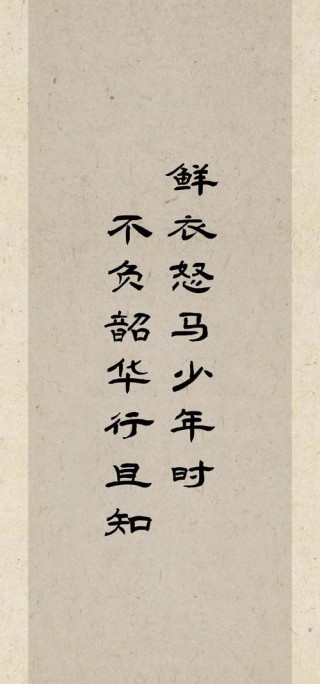 鲜衣怒马少年时
不负韶华行且知